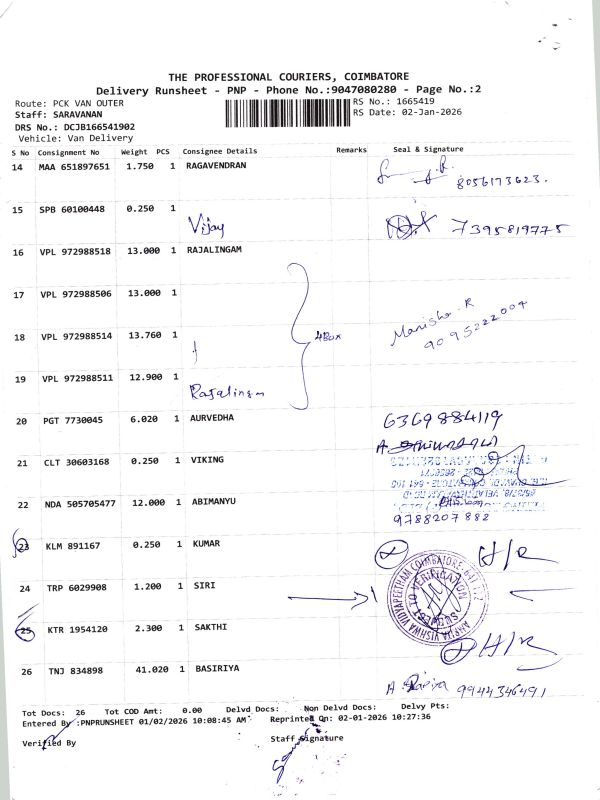 THE PROFESSIONAL COURIERS, COIMBATORE
Delivery Runsheet - PNP - Phone No.:9047080280 - Page No.:2
Route: PCK VAN OUTER RS No.: 1665419
Staff: SARAVANAN RS Date: 02-Jan-2026
DRS No.: DCJB166541902
Vehicle: Van Delivery
S No Consignment No Weight PCS Consignee Details Remarks Seal & Signature
14 MAA 651897651 1.750 1 RAGAVENDRAN
8056173623.
15 SPB 60100448 0.250 1
Vijay 7395819775
16 VPL 972988518 13.000 1 RAJALINGAM
17 VPL 972988506 13.000 1
Manisha R
18 VPL 972988514 13.760 1 4Box
9095222004
19 VPL 972988511 12.900 1
Rajalingam
20 PGT 7730045 6.020 1 AURVEDHA 6369884119
21 CLT 30603168 0.250 1 VIKING
22 NDA 505705477 12.000 1 ABIMANYU
9788207882
23 KLM 891167 0.250 1 KUMAR H/R
24 TRP 6029908 1.200 1 SIRI
25 KTR 1954120 2.300 1 SAKTHI
H/R
26 TNJ 834898 41.020 1 BASIRIYA
9944346491
Tot Docs: 26 Tot COD Amt: 0.00 Delvd Docs: Non Delvd Docs: Delvy Pts:
Entered By :PNPRUNSHEET 01/02/2026 10:08:45 AM Reprinted On: 02-01-2026 10:27:36
Verified By Staff Signature